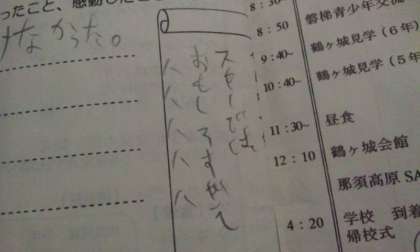 ったこと、感動したこと
けなかった。
スキーでは、
おもしろすぎて
ハハハハハ
8:50 磐梯青少年交流
9:40~ 鶴ヶ城見学（6年）
10:40~ 鶴ヶ城見学（5年
11:30~ 昼食
12:10 鶴ヶ城会館
那須高原SA
4:20 学校 到着
帰校式